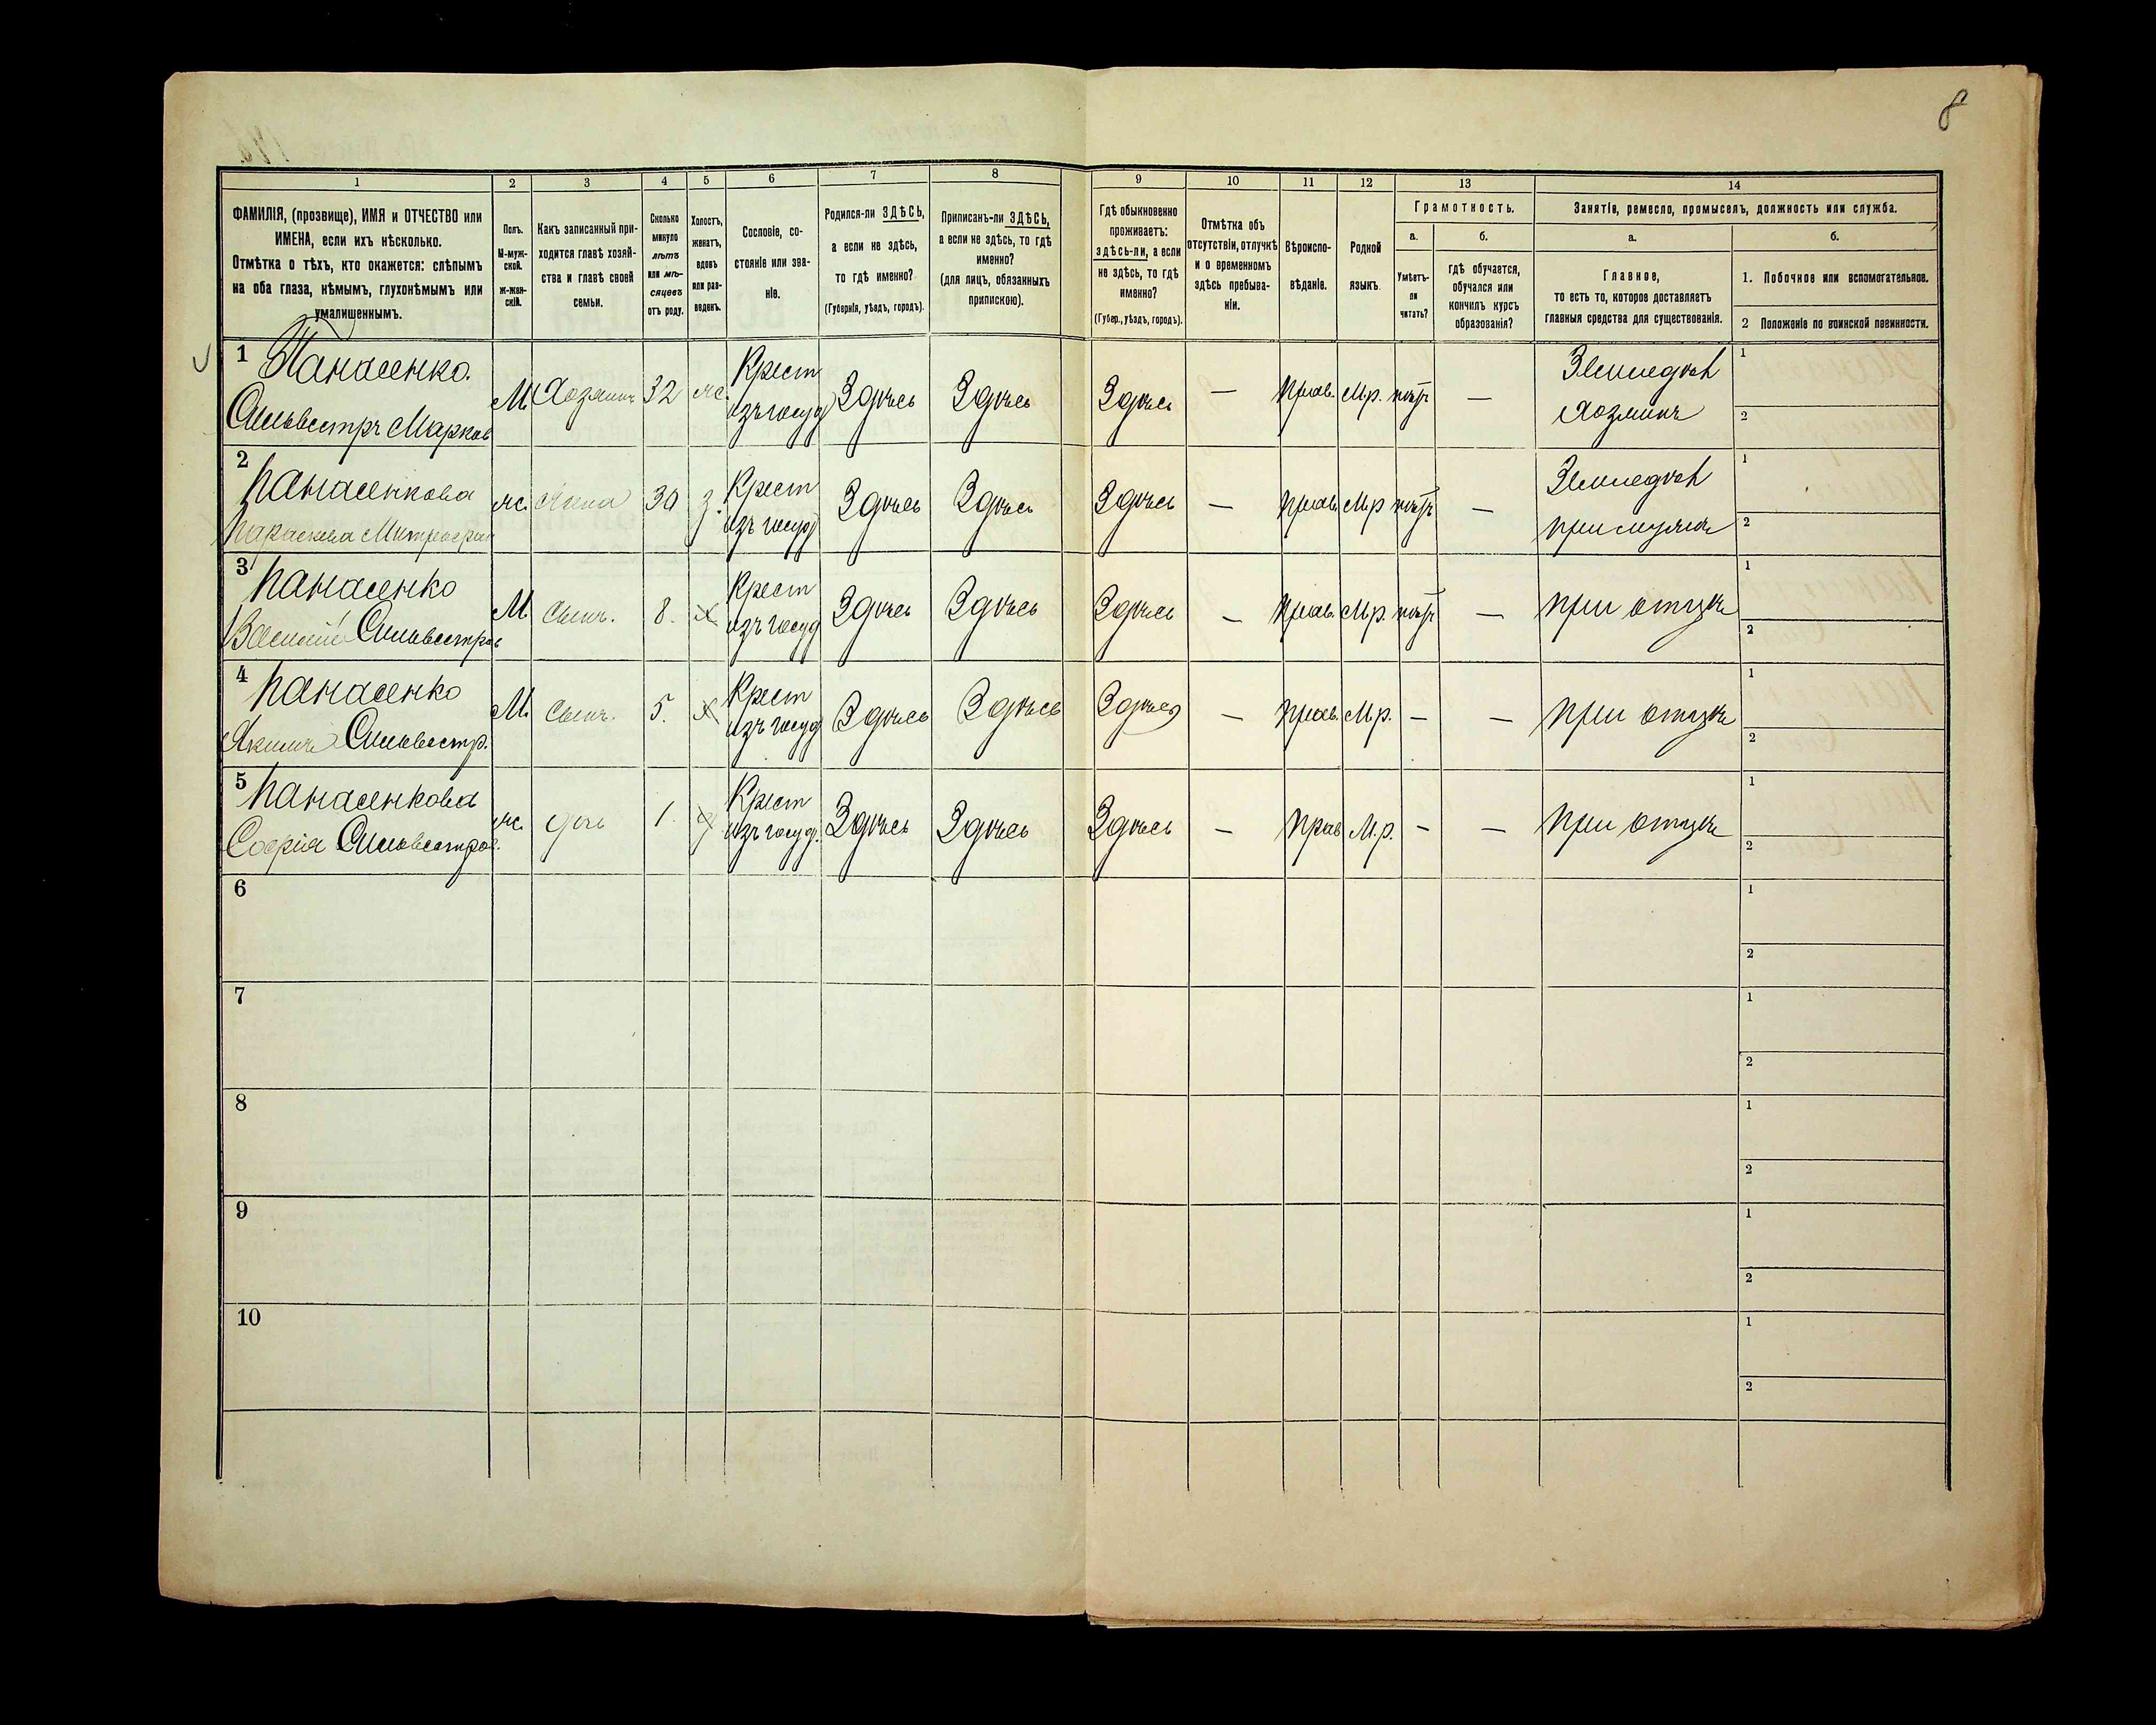 8
1
2
3
4
5
6
7
8
9
10
11
12
13
14
ФАМИЛІЯ, (прозвище), ИМЯ и ОТЧЕСТВО или
ИМЕНА, если ихъ нѣсколько.
Отмѣтка о тѣхъ, кто окажется: слѣпымъ
на оба глаза, нѣмымъ, глухонѣмымъ или
умалишеннымъ.
Полъ.
М-муж-
ской.
ж-жен-
скій.
Какъ записанный при-
ходится главѣ хозяй-
ства и главѣ своей
семьи.
Сколько
минуло
лѣтъ
или мѣ-
сяцевъ
отъ роду.
Холостъ,
женатъ,
вдовъ
или раз-
веденъ.
Сословіе, со-
стояніе или зва-
ніе.
Родился-ли ЗДѢСЬ,
а если не здѣсь,
то гдѣ именно?
(Губернія, уѣздъ, городъ).
Приписанъ-ли ЗДѢСЬ,
а если не здѣсь, то гдѣ
именно?
(для лицъ, обязанныхъ
припискою).
Гдѣ обыкновенно
проживаетъ:
здѣсь-ли, а если
не здѣсь, то гдѣ
именно?
(Губер., уѣздъ, городъ).
Отмѣтка объ
отсутствіи, отлучкѣ
и о временномъ
здѣсь пребыва-
ніи.
Вѣроиспо-
вѣданіе.
Родной
языкъ.
Грамотность.
а.
Умѣетъ-
ли
читать?
б.
гдѣ обучается,
обучался или
кончилъ курсъ
образованія?
Занятіе, ремесло, промыселъ, должность или служба.
а.
Главное,
то есть то, которое доставляетъ
главныя средства для существованія.
б.
1. Побочное или вспомогательное.
2 Положеніе по воинской повинности.
1 Панасенко.
Сильвестръ Марков
М. Хозяинъ 32 ж.
Крест
изъ госуд
Здѣсь Здѣсь Здѣсь — прав. М.р. нѣтъ —
Земледѣл
Хозяинъ
1
2
2 Панасенкова
Параскева Митрофан
ж. Жена 30 з.
Крест
изъ госуд
Здѣсь Здѣсь Здѣсь — прав. М.р нѣтъ —
Земледѣл
при мужѣ
1
2
3 Панасенко
Василій Сильвестров
М. сынъ. 8. х
Крест
изъ госуд
Здѣсь Здѣсь Здѣсь — прав. М.р. нѣтъ — при отцѣ
1
2
4 Панасенко
Якимъ Сильвестр.
М. сынъ. 5. х
Крест
изъ госуд
Здѣсь Здѣсь Здѣсь — прав. М.р. — — при отцѣ
1
2
5 Панасенкова
Софія Сильвестров.
ж. дочь 1.
Крест
изъ госуд.
Здѣсь Здѣсь Здѣсь — прав М.р. — — при отцѣ
1
2
6
1
2
7
1
2
8
1
2
9
1
2
10
1
2